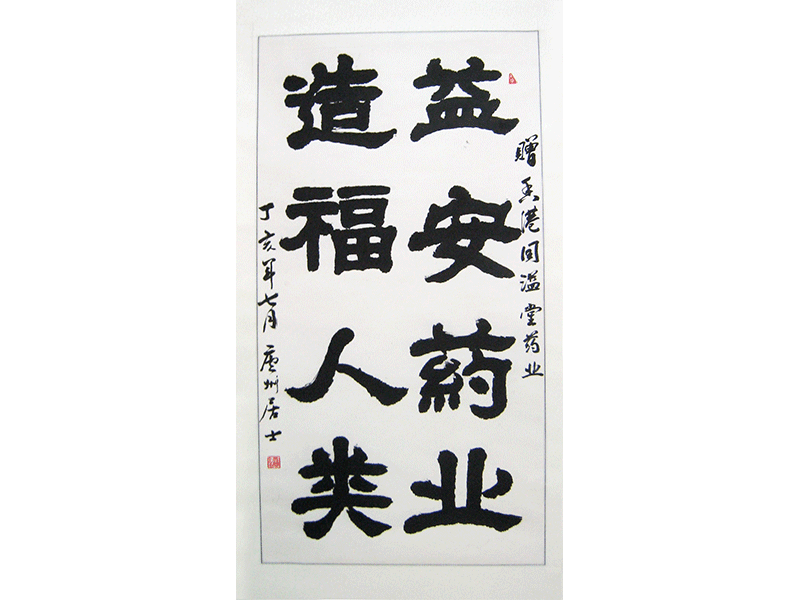 赠香港同溢堂药业
益安葯业
造福人类
丁亥年七月庐州居士